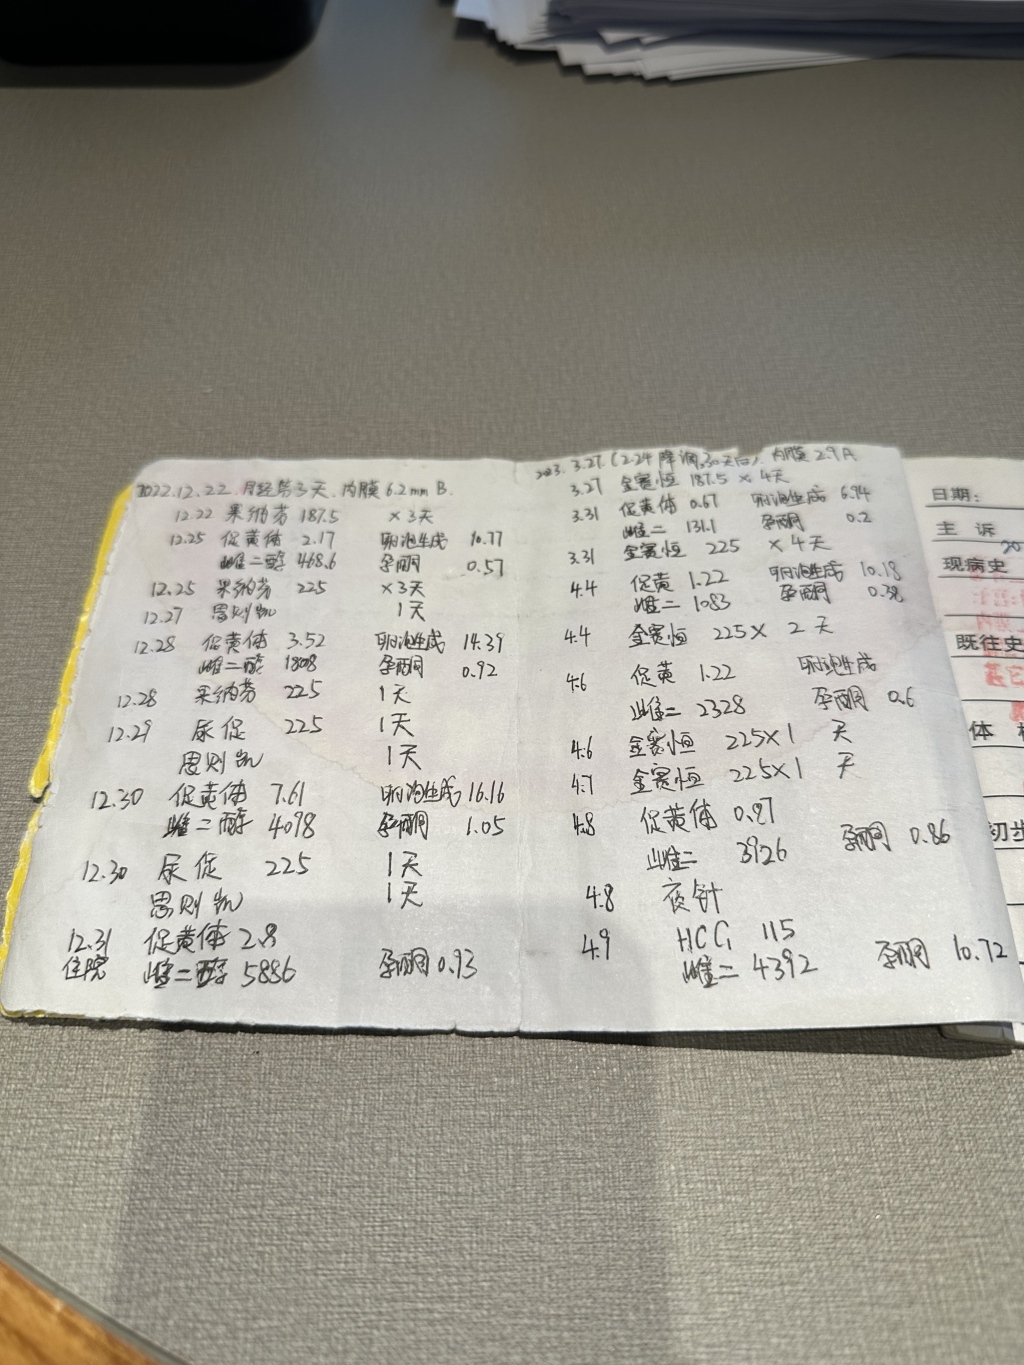 2022.12.22.月经第3天.内膜6.2mm B.
12.22 果纳芬 187.5 ×3天
12.25 促黄体 2.17 卵泡生成 10.77
雌二醇 468.6 孕酮 0.57
12.25 果纳芬 225 ×3天
12.27 思则凯 1天
12.28 促黄体 3.52 卵泡生成 14.39
雌二醇 1808 孕酮 0.92
12.28 果纳芬 225 1天
12.29 尿促 225 1天
思则凯 1天
12.30 促黄体 7.61 卵泡生成 16.16
雌二醇 4098 孕酮 1.05
12.30 尿促 225 1天
思则凯 1天
12.31 促黄体 2.8
住院 雌二醇 5886 孕酮 0.93
2023.3.27.(2.24降调,30天后).内膜2.9A
3.27 金赛恒 187.5 × 4天
3.31 促黄体 0.67 卵泡生成 6.94
雌二 131.1 孕酮 0.2
3.31 金赛恒 225 × 4天
4.4 促黄 1.22 卵泡生成 10.18
雌二 1083 孕酮 0.38
4.4 金赛恒 225× 2天
4.6 促黄 1.22 卵泡生成
雌二 2328 孕酮 0.6
4.6 金赛恒 225×1 天
4.7 金赛恒 225×1 天
4.8 促黄体 0.87
雌二 3926 孕酮 0.86
4.8 夜针
4.9 HCG 115
雌二 4392 孕酮 10.72
日期:
主 诉
20
现病史
既往史
体
初步